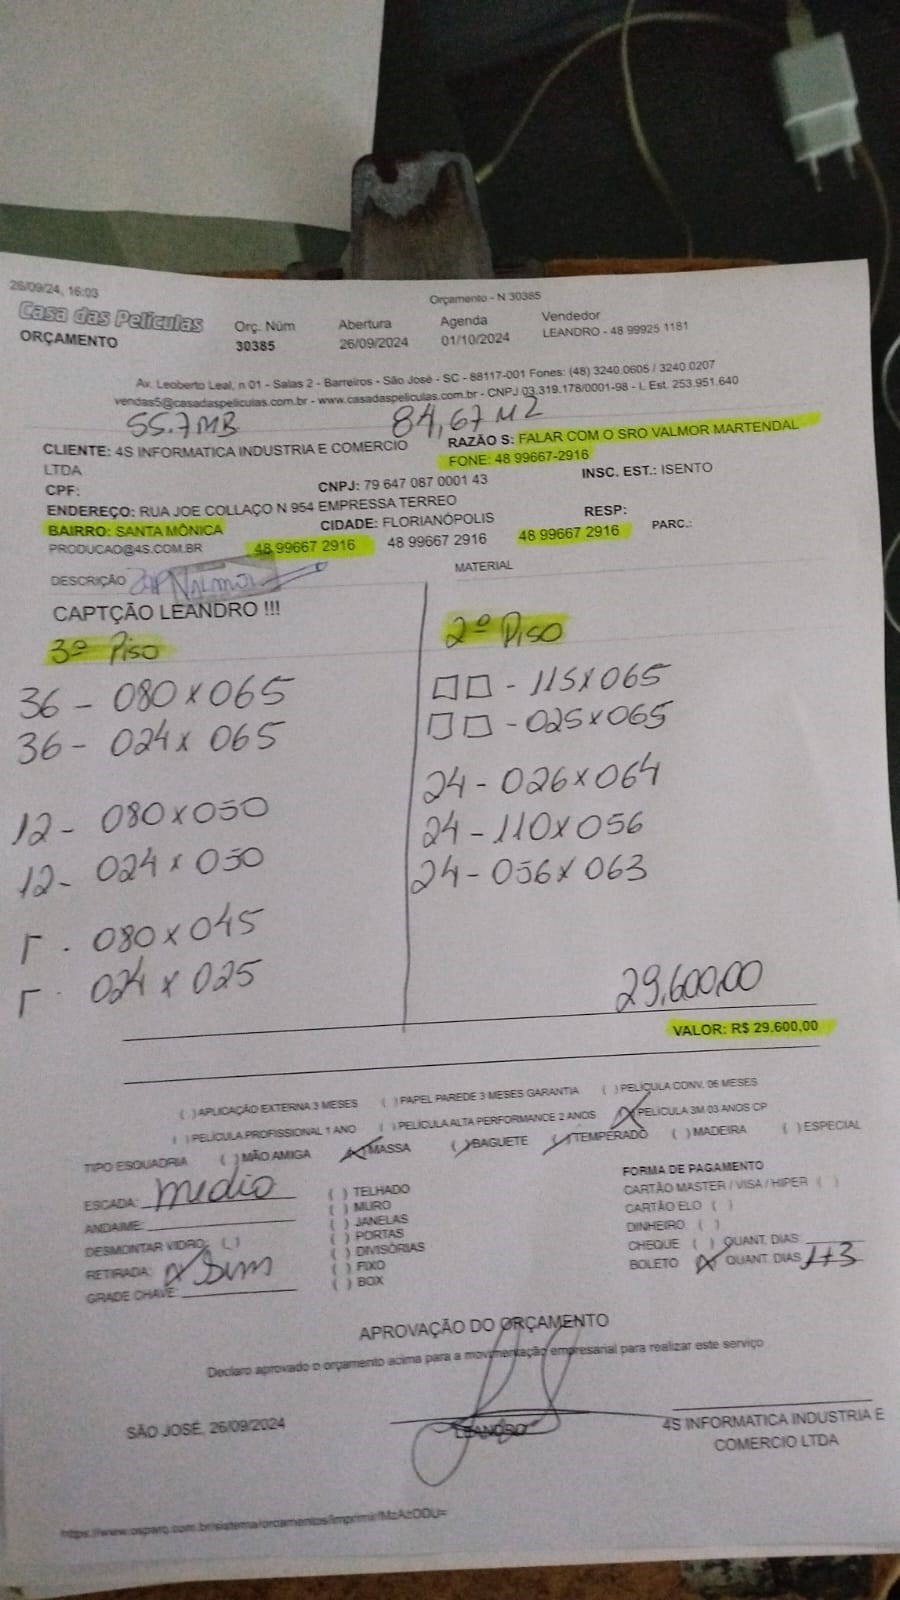 26/09/24, 16:03
Orçamento - N 30385
Casa das Películas
ORÇAMENTO
Orç. Núm
30385
Abertura
26/09/2024
Agenda
01/10/2024
Vendedor
LEANDRO - 48 99925 1181
Av. Leoberto Leal, n 01 - Salas 2 - Barreiros - São José - SC - 88117-001 Fones: (48) 3240.0605 / 3240.0207
vendas5@casadaspeliculas.com.br - www.casadaspeliculas.com.br - CNPJ 03.319.178/0001-98 - I. Est. 253.951.640
55.7MB 84,67 M2
CLIENTE: 4S INFORMATICA INDUSTRIA E COMERCIO
LTDA
RAZÃO S: FALAR COM O SRO VALMOR MARTENDAL
FONE: 48 99667-2916
CPF:
CNPJ: 79 647 087 0001 43
INSC. EST.: ISENTO
ENDEREÇO: RUA JOE COLLAÇO N 954 EMPRESSA TERREO
BAIRRO: SANTA MÔNICA
CIDADE: FLORIANÓPOLIS
RESP:
PRODUCAO@4S.COM.BR
48 99667 2916
48 99667 2916
48 99667 2916
PARC.:
DESCRIÇÃO
VALMOR
MATERIAL
CAPTÇÃO LEANDRO !!!
3º Piso
36 - 080 x 065
36 - 024 x 065
12 - 080 x 050
12 - 024 x 050
Γ . 080 x 045
Γ . 024 x 025
2º Piso
□□ - 115 x 065
□□ - 025 x 065
24 - 026 x 064
24 - 110 x 056
24 - 056 x 063
29.600,00
VALOR: R$ 29.600,00
( )APLICAÇÃO EXTERNA 3 MESES ( )PAPEL PAREDE 3 MESES GARANTIA ( )PELÍCULA CONV. 06 MESES
( )PELÍCULA PROFISSIONAL 1 ANO ( )PELÍCULA ALTA PERFORMANCE 2 ANOS (X)PELÍCULA 3M 03 ANOS CP
TIPO ESQUADRIA ( )MÃO AMIGA (X)MASSA ( )BAGUETE ( )TEMPERADO ( )MADEIRA ( )ESPECIAL
ESCADA: Medio
ANDAIME:
DESMONTAR VIDRO: ( )
RETIRADA: x Sim
GRADE CHAVE:
( ) TELHADO
( ) MURO
( ) JANELAS
( ) PORTAS
( ) DIVISÓRIAS
( ) FIXO
( ) BOX
FORMA DE PAGAMENTO
CARTÃO MASTER / VISA / HIPER ( )
CARTÃO ELO ( )
DINHEIRO ( )
CHEQUE ( ) QUANT. DIAS
BOLETO (X) QUANT. DIAS 1+3
APROVAÇÃO DO ORÇAMENTO
Declaro aprovado o orçamento acima para a movimentação empresarial para realizar este serviço
SÃO JOSÉ, 26/09/2024
LEANDRO
4S INFORMATICA INDUSTRIA E
COMERCIO LTDA
https://www.osparq.com.br/sistema/orcamentos/imprimir/MzAzODU=